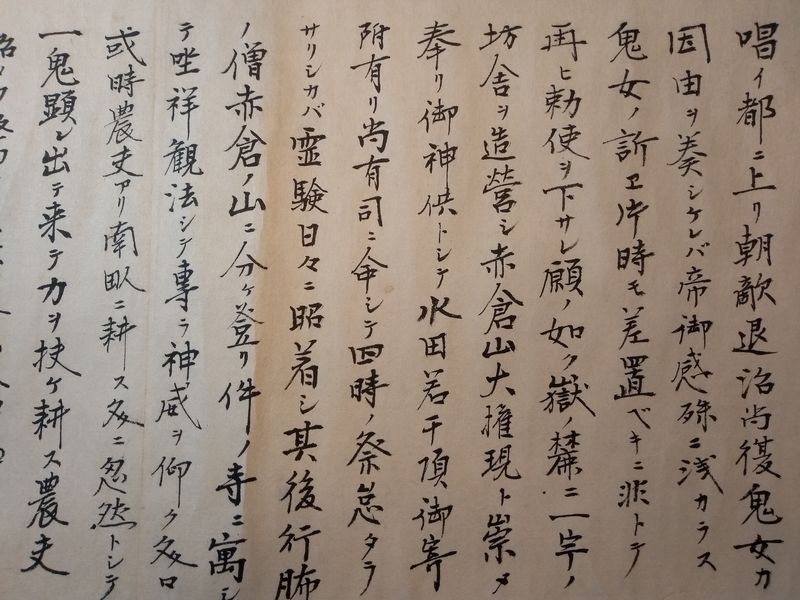 唱イ都ニ上リ朝敵退治尚復鬼女カ
因由ヲ奏シケレバ帝御感殊ニ浅カラス
鬼女ノ訴ヱ片時モ差置ベキニ非トテ
再ヒ勅使ヲ下サレ願ノ如ク嶽ノ麓ニ一宇ノ
坊舎ヲ造營シ赤倉山大権現ト崇メ
奉リ御神供トシテ水田若干頃御寄
附有リ尚有司ニ命シテ四時ノ祭怠タラ
サリシカバ霊験日々ニ昭着シ其後行脚
ノ僧赤倉ノ山ニ分ケ登リ件ノ寺ニ寓シ
テ坐祥観法シテ専ラ神威ヲ仰ク
或時農夫アリ南畝ニ耕ス処ニ忽然トシテ
一鬼顕レ出テ来テ力ヲ扶ケ耕ス農夫